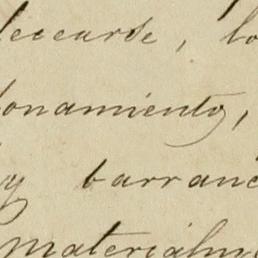 leccarse, lo
onamiento,
y barranc
materialm